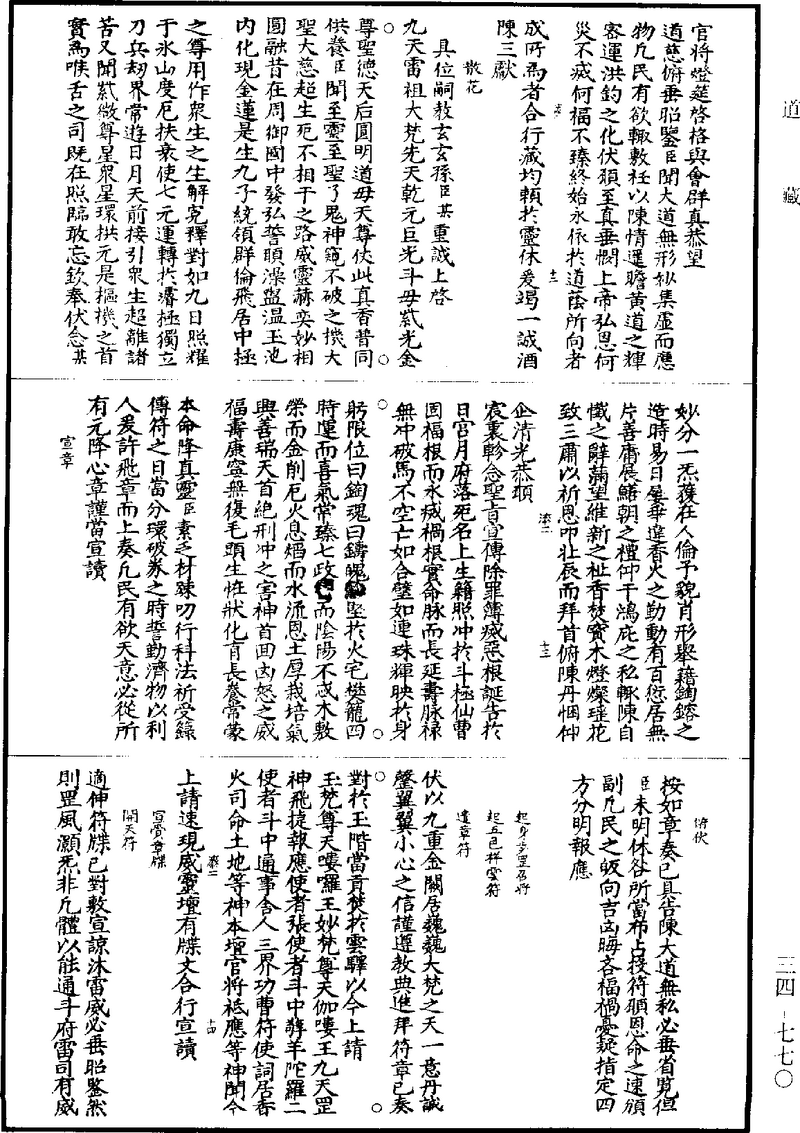 道藏
官將燈筵啓格與會群真恭望
道慈俯垂昭鑒臣聞大道無形妙集虛而應
物凡民有欲輒敷衽以陳情邐瞻黃道之輝
密運洪鈞之化伏願至真垂憫上帝弘恩何
災不滅何福不臻終始永依於道蔭所向者
十二
成所為者合行藏均賴於靈休爰竭一誠酒
陳三獻
散花
具位嗣教玄玄孫臣某重誠上啓
九天雷祖大梵先天乾元巨光斗母紫光金
尊聖德天后圓明道母天尊伏此真香普同
供養臣聞至靈至聖了鬼神窺不破之機大
聖大慈超生死不相干之路威靈赫奕妙相
圓融昔在周御國中發弘誓願澡盥溫玉池
內化現金蓮是生九子統領群倫飛居中極
之尊用作衆生之生解冤釋對如九日照耀
于氷山度厄扶衰使七元運轉於璿極獨立
刀兵劫界常遊日月天前接引衆生超離諸
苦又聞紫微尊星衆星環拱元是樞機之首
實為喉舌之司既在照臨敢忘欽奉伏念某
妙分一炁獲在人倫予貌肖形舉藉鈞鎔之
造時易日屢華違香火之勤動有百愆居無
片善庸展鱔朝之禮仰干鴻庇之私輒陳自
懺之辭薦望維新之祉香焚寳木燈燦瑶花
致三肅以祈恩叩壯辰而拜首俯陳丹悃仰
企清光恭願
十三
宸衷軫念聖旨宣傳除罪簿滅惡根誕告於
日宮月府落死名上生籍照冲於斗極仙曹
固福根而永滅禍根實命脉而長延壽脉祿
無冲破馬不空亡如合璧如連珠輝映於身
躬限位曰鈎魂曰鑄魄堅於火宅樊籠四
時運而喜氣常臻七政而陰陽不忒木敷
榮而金削厄火息熠而水流恩土厚栽培氣
興善端天首絕刑冲之害神首回凶怒之威
福壽康寧無復毛頭生恠狀化育長養常蒙
本命降真靈臣素乏材竦叨行科法祈受籙
傳符之日當分環破券之時誓勤濟物以利
人爰許飛章而上奏凡民有欲天意必從所
有元降心章謹當宣讀
宣章
俯伏
按如章奏已具告陳大道無私必垂省覧但
臣未明休咎所當布占投符願恩命之速頒
副凡民之皈向吉凶晦吝福禍憂疑指定四
方分明報應
起身步罡召將
起五色祥雲符
遣章符
伏以九重金闕居巍巍大梵之天一意丹誠
罄翼翼小心之信謹遵教典進拜符章已奏
對於玉階當貢焚於雲驛以今上請
玉梵尊天嘍囉王妙梵尊天伽嘍王九天罡
神飛捷報應使者張使者斗中彂羊陀羅二
使者斗中通事舍人三界功曹符使詞居香
火司命土地等神本壇官將祗應等神聞今
十四
上請速現威靈壇有牒文合行宣讀
宣賞章牒
開天符
適伸符牒已對敷宣諒沐雷威必垂昭鑒然
則罡風灝炁非凡體以能通斗府雷司有威
三四-七七〇